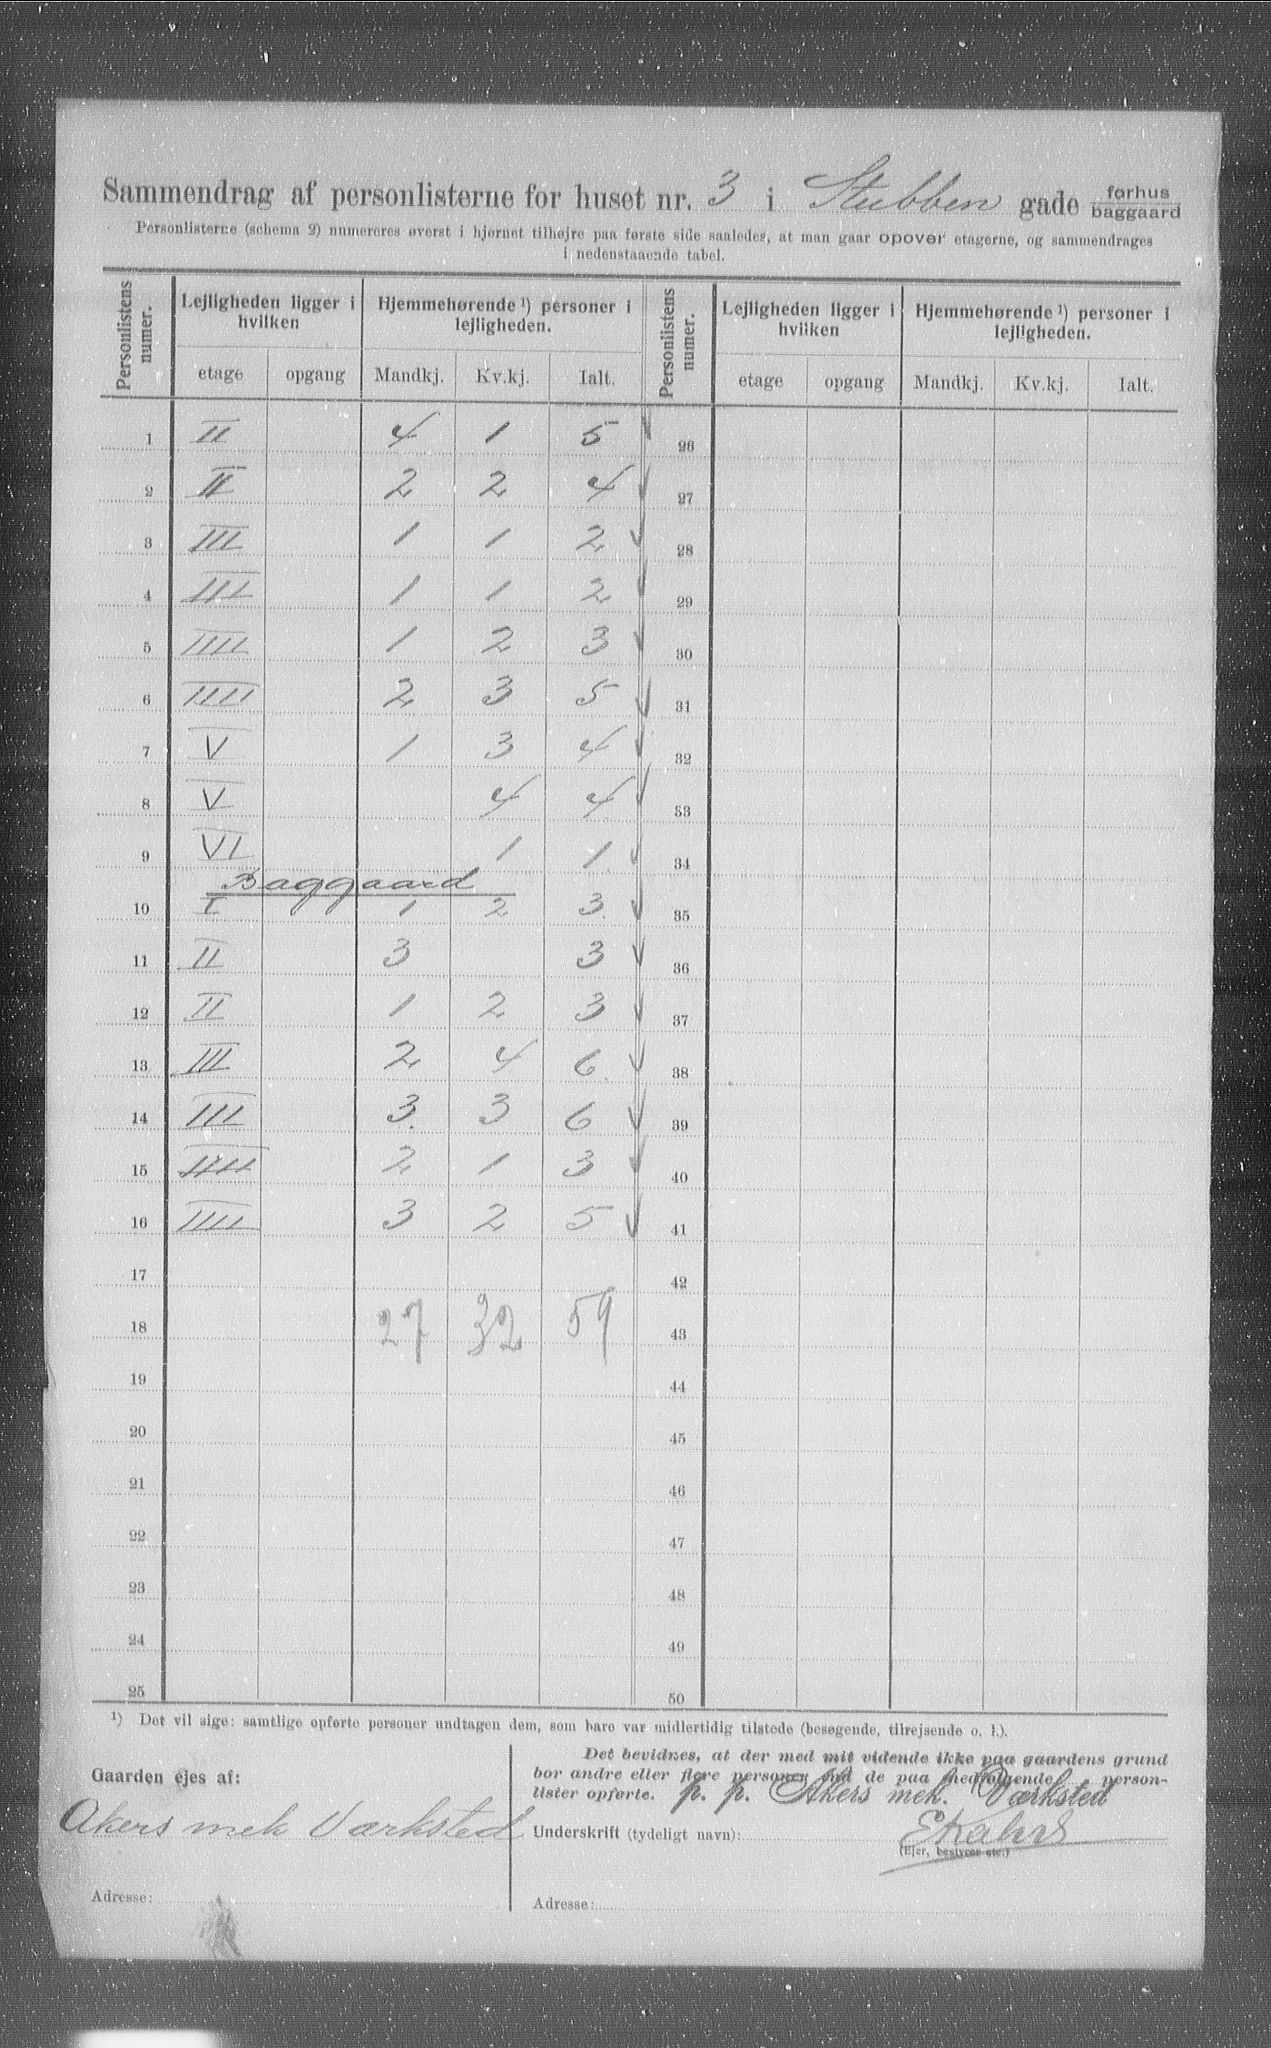 Sammendrag af personlisterne for huset nr. 3 i Stubben gade forhus baggaard
Personlisterne (schema 2) numereres øverst i hjørnet tilhøjre paa første side saaledes, at man gaar opover etagerne, og sammendrages
i nedenstaaende tabel.
Personlistens numer. Lejligheden ligger i hvilken Hjemmehørende ¹) personer i lejligheden. Personlistens numer. Lejligheden ligger i hvilken Hjemmehørende ¹) personer i lejligheden.
etage opgang Mandkj. Kv.kj. Ialt. etage opgang Mandkj. Kv.kj. Ialt.
1 II 4 1 5 26
2 II 2 2 4 27
3 III 1 1 2 28
4 III 1 1 2 29
5 IIII 1 2 3 30
6 IIII 2 3 5 31
7 V 1 3 4 32
8 V 4 4 33
9 VI 1 1 34
Baggaard
10 I 1 2 3 35
11 II 3 3 36
12 II 1 2 3 37
13 III 2 4 6 38
14 III 3 3 6 39
15 IIII 2 1 3 40
16 IIII 3 2 5 41
17 42
18 27 32 59 43
19 44
20 45
21 46
22 47
23 48
24 49
25 50
¹) Det vil sige: samtlige opførte personer undtagen dem, som bare var midlertidig tilstede (besøgende, tilrejsende o. l.).
Gaarden ejes af:
Akers mek Værksted
Adresse:
Det bevidnes, at der med mit vidende ikke paa gaardens grund
bor andre eller flere personer end de paa medfølgende person-
lister opførte. p. p. Akers mek. Værksted
Underskrift (tydeligt navn):
(Ejer, bestyrer etc.)
Adresse: